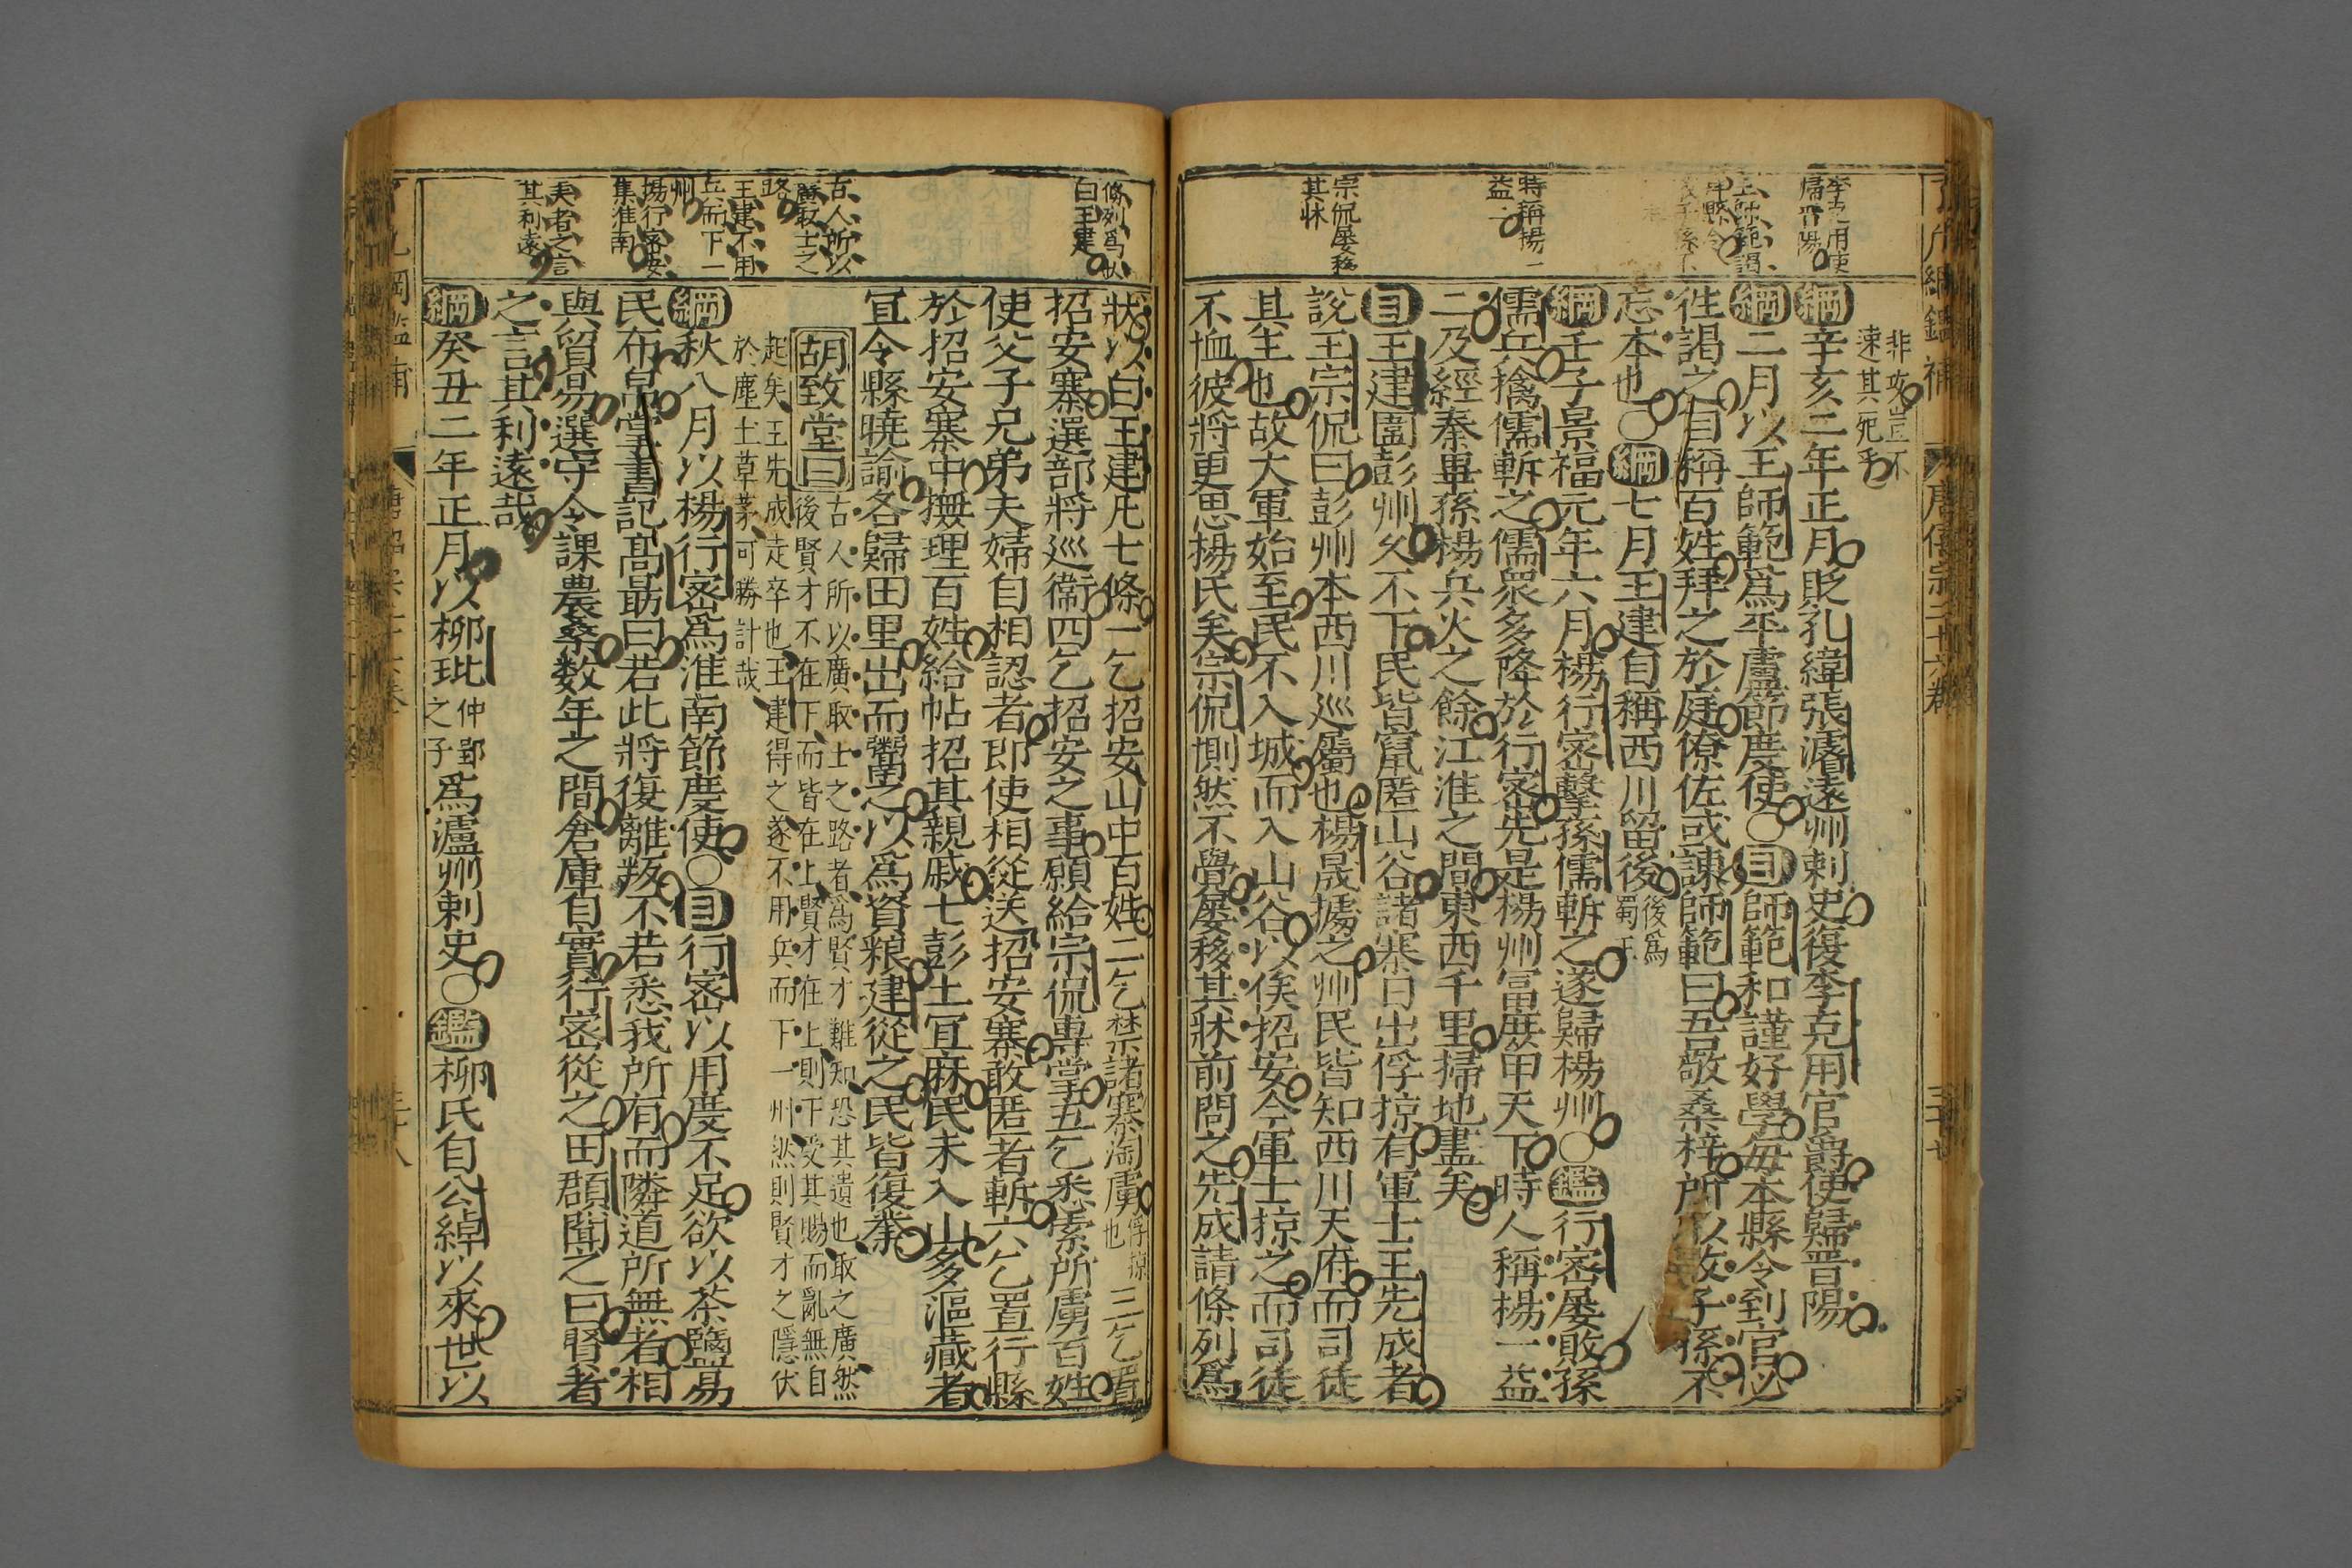 了凡綱鑑補
唐僖宗二十六卷
三十七
李克用使
歸晉陽
王師範謁
特稱揚一
益二
宗侃屢移
其牀
非攻豈不
速其死乎
綱辛亥二年正月貶孔緯張濬遠州刺史復李克用官爵使歸晉陽
綱二月以王師範爲平盧節度使○目師範和謹好學每本縣令到官必
徃謁之自稱百姓拜之於庭僚佐或諫師範曰吾敬桑梓所以教子孫不
忘本也○綱七月王建自稱西川留後後爲蜀王
綱壬子景福元年六月楊行密擊孫儒斬之遂歸楊州○鑑行密屡敗孫
儒兵擒儒斬之儒衆多降於行密先是楊州富庶甲天下時人稱揚一益
二及經秦畢孫楊兵火之餘江淮之間東西千里掃地盡矣
目王建圍彭州久不下民皆竄匿山谷諸寨日出俘掠有軍士王先成者
說王宗侃曰彭州本西川巡屬也楊晟據之州民皆知西川天府而司徒
其主也故大軍始至民不入城而入山谷以俟招安今軍士掠之而司徒
不恤彼將更思楊氏矣宗侃惻然不覺屡移其牀前問之先成請條列爲
條列爲狀
白王建
古人所以
廣取士之
路
王建不用
兵而下一
州
楊行密安
集淮南
美者之言
其利遠
狀以白王建凡七條一乞招安山中百姓二乞禁諸寨淘虜俘掠也三乞置
招安寨選部將巡衞四乞招安之事願給宗侃專掌五乞悉索所虜百姓
使父子兄弟夫婦自相認者即使相從送招安寨敢匿者斬六乞置行縣
於招安寨中撫理百姓給帖招其親戚七彭土宜麻民未入山多漚藏者
宜令縣曉諭各歸田里出而鬻之以爲資粮建從之民皆復業
胡致堂曰古人所以廣取士之路者爲賢才難知恐其遺也取之廣然
後賢才不在下而皆在上賢才在上則下受其賜而亂無自
起矣王先成走卒也王建得之遂不用兵而下一州然則賢才之隱伏
於塵土草莽可勝計哉
綱秋八月以楊行密爲淮南節度使○目行密以用度不足欲以茶鹽易
民布帛掌書記高勗曰若此將復離叛不若悉我所有而隣道所無者相
與貿易選守令課農桑数年之間倉庫自實行密從之田頵聞之曰賢者
之言其利遠哉
綱癸丑二年正月以柳玭仲郢之子爲瀘州刺史○鑑柳氏自公綽以來世以
三十八